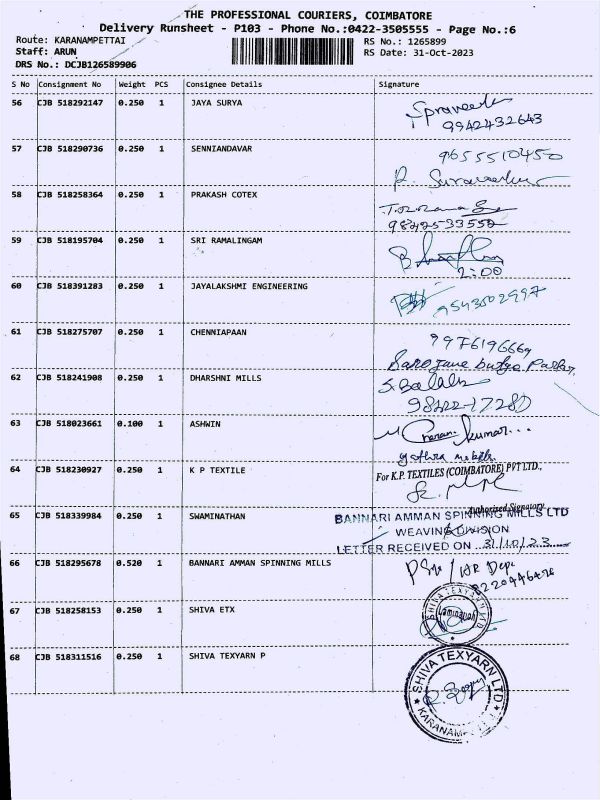 THE PROFESSIONAL COURIERS, COIMBATORE
Delivery Runsheet - P103 - Phone No.:0422-3505555 - Page No.:6
Route: KARANAMPETTAI
RS No.: 1265899
Staff: ARUN
RS Date: 31-Oct-2023
DRS No.: DCJB126589906
S No Consignment No Weight PCS Consignee Details Signature
56 CJB 518292147 0.250 1 JAYA SURYA
9942432643
57 CJB 518290736 0.250 1 SENNIANDAVAR 9655510450
58 CJB 518258364 0.250 1 PRAKASH COTEX
9842533552
59 CJB 518195704 0.250 1 SRI RAMALINGAM
2:00
60 CJB 518391283 0.250 1 JAYALAKSHMI ENGINEERING 9543502997
61 CJB 518275707 0.250 1 CHENNIAPAAN 9976196669
62 CJB 518241908 0.250 1 DHARSHNI MILLS S. Balaln
98422-17280
63 CJB 518023661 0.100 1 ASHWIN kumar...
64 CJB 518230927 0.250 1 K P TEXTILE For K.P. TEXTILES (COIMBATORE) PVT LTD.,
Authorised Signatory
65 CJB 518339984 0.250 1 SWAMINATHAN BANNARI AMMAN SPINNING MILLS LTD
WEAVING DIVISION
LETTER RECEIVED ON 31/10/23
66 CJB 518295678 0.520 1 BANNARI AMMAN SPINNING MILLS / HR Dept
67 CJB 518258153 0.250 1 SHIVA ETX SHIVA TEXYARN LTD
Lamination
68 CJB 518311516 0.250 1 SHIVA TEXYARN P SHIVA TEXYARN LTD
KARANAM